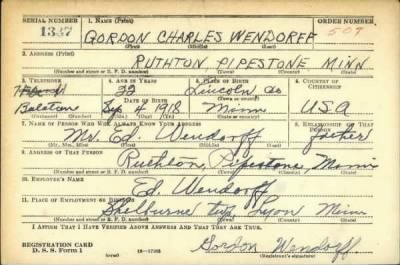 SERIAL NUMBER 1. NAME (Print) ORDER NUMBER
1337 GORDON CHARLES WENDORFF 507
(First) (Middle) (Last)
2. ADDRESS (Print)
RUTHTON PIPESTONE MINN
(Number and street or R. F. D. number) (Town) (County) (State)
3. TELEPHONE 4. AGE IN YEARS 5. PLACE OF BIRTH 6. COUNTRY OF CITIZENSHIP
22 Lincoln Co
Balaton DATE OF BIRTH
Sep 4 1918 Minn USA
(Exchange) (Number) (Mo.) (Day) (Yr.) (State or country)
7. NAME OF PERSON WHO WILL ALWAYS KNOW YOUR ADDRESS 8. RELATIONSHIP OF THAT PERSON
Mr. Ed. Wendorff father
(Mr., Mrs., Miss) (First) (Middle) (Last)
9. ADDRESS OF THAT PERSON
Ruthton, Pipestone, Minn
(Number and street or R. F. D. number) (Town) (County) (State)
10. EMPLOYER'S NAME
Ed. Wendorff
11. PLACE OF EMPLOYMENT OR BUSINESS
Shelburne twp, Lyon Minn
(Number and street or R. F. D. number) (Town) (County) (State)
I AFFIRM THAT I HAVE VERIFIED ABOVE ANSWERS AND THAT THEY ARE TRUE.
REGISTRATION CARD
D. S. S. Form 1 (over) Gordon Wendorff.
(Registrant's signature)